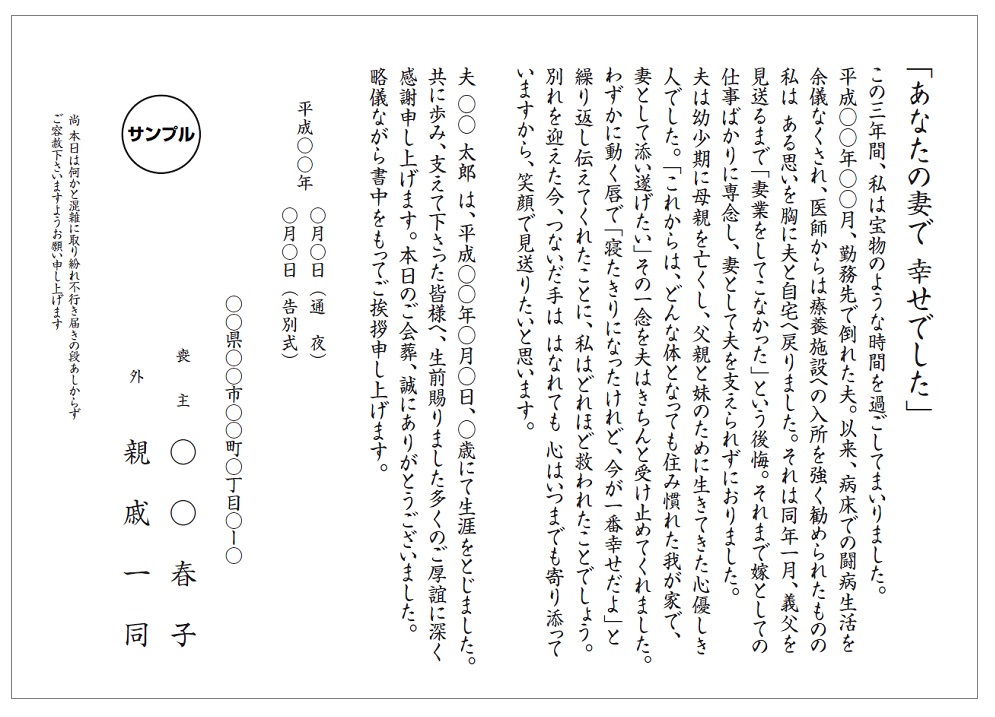 「あなたの妻で 幸せでした」
この三年間、私は宝物のような時間を過ごしてまいりました。
平成〇〇年〇〇月、勤務先で倒れた夫。以来、病床での闘病生活を
余儀なくされ、医師からは療養施設への入所を強く勧められたものの
私は ある思いを胸に夫と自宅へ戻りました。それは同年一月、義父を
見送るまで「妻業をしてこなかった」という後悔。それまで嫁としての
仕事ばかりに専念し、妻として夫を支えられずにおりました。
夫は幼少期に母親を亡くし、父親と妹のために生きてきた心優しき
人でした。「これからは、どんな体となっても住み慣れた我が家で、
妻として添い遂げたい」その一念を夫はきちんと受け止めてくれました。
わずかに動く唇で「寝たきりになったけれど、今が一番幸せだよ」と
繰り返し伝えてくれたことに、私はどれほど救われたことでしょう。
別れを迎えた今、つないだ手は はなれても 心はいつまでも寄り添って
いますから、笑顔で見送りたいと思います。
夫 〇〇 太郎 は、平成〇〇年〇月〇日、〇歳にて生涯をとじました。
共に歩み、支えて下さった皆様へ、生前賜りました多くのご厚誼に深く
感謝申し上げます。本日のご会葬、誠にありがとうございました。
略儀ながら書中をもってご挨拶申し上げます。
平成〇〇年 〇月〇日（通 夜）
〇月〇日（告別式）
〇〇県〇〇市〇〇町〇丁目〇ー〇
喪 主 〇 〇 春 子
外 親 戚 一 同
サンプル
尚 本日は何かと混雑に取り紛れ不行き届きの段あしからず
ご容赦下さいますようお願い申し上げます